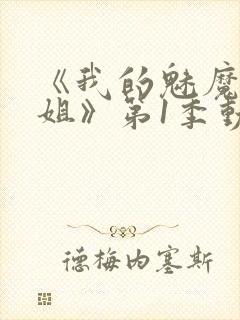 《我的魅魔
姐》第1季動
德梅内塞斯